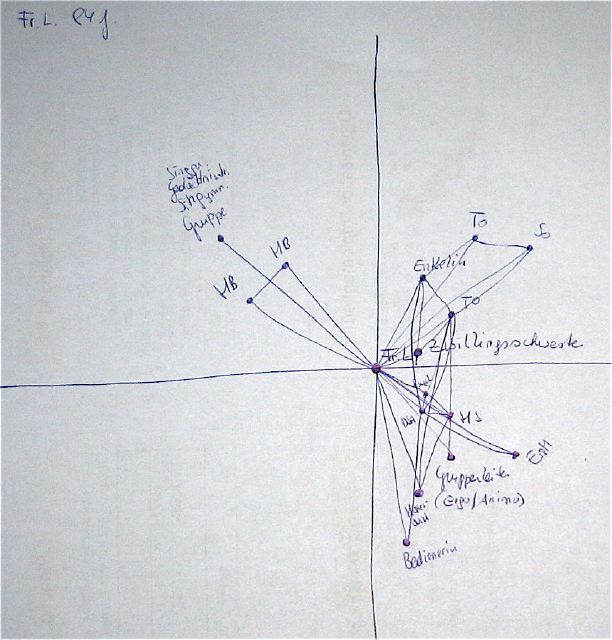 Fr. L. 84 J.
Singgr.
Gedächtnistr.
Sitzgymn.
Gruppe
HB
HB
To
So
Enkelin
To
Fr. L.
Zwillingsschwester
HJ
EPH
Gruppenleiter
(Ergo/Anima)
Bedienerin